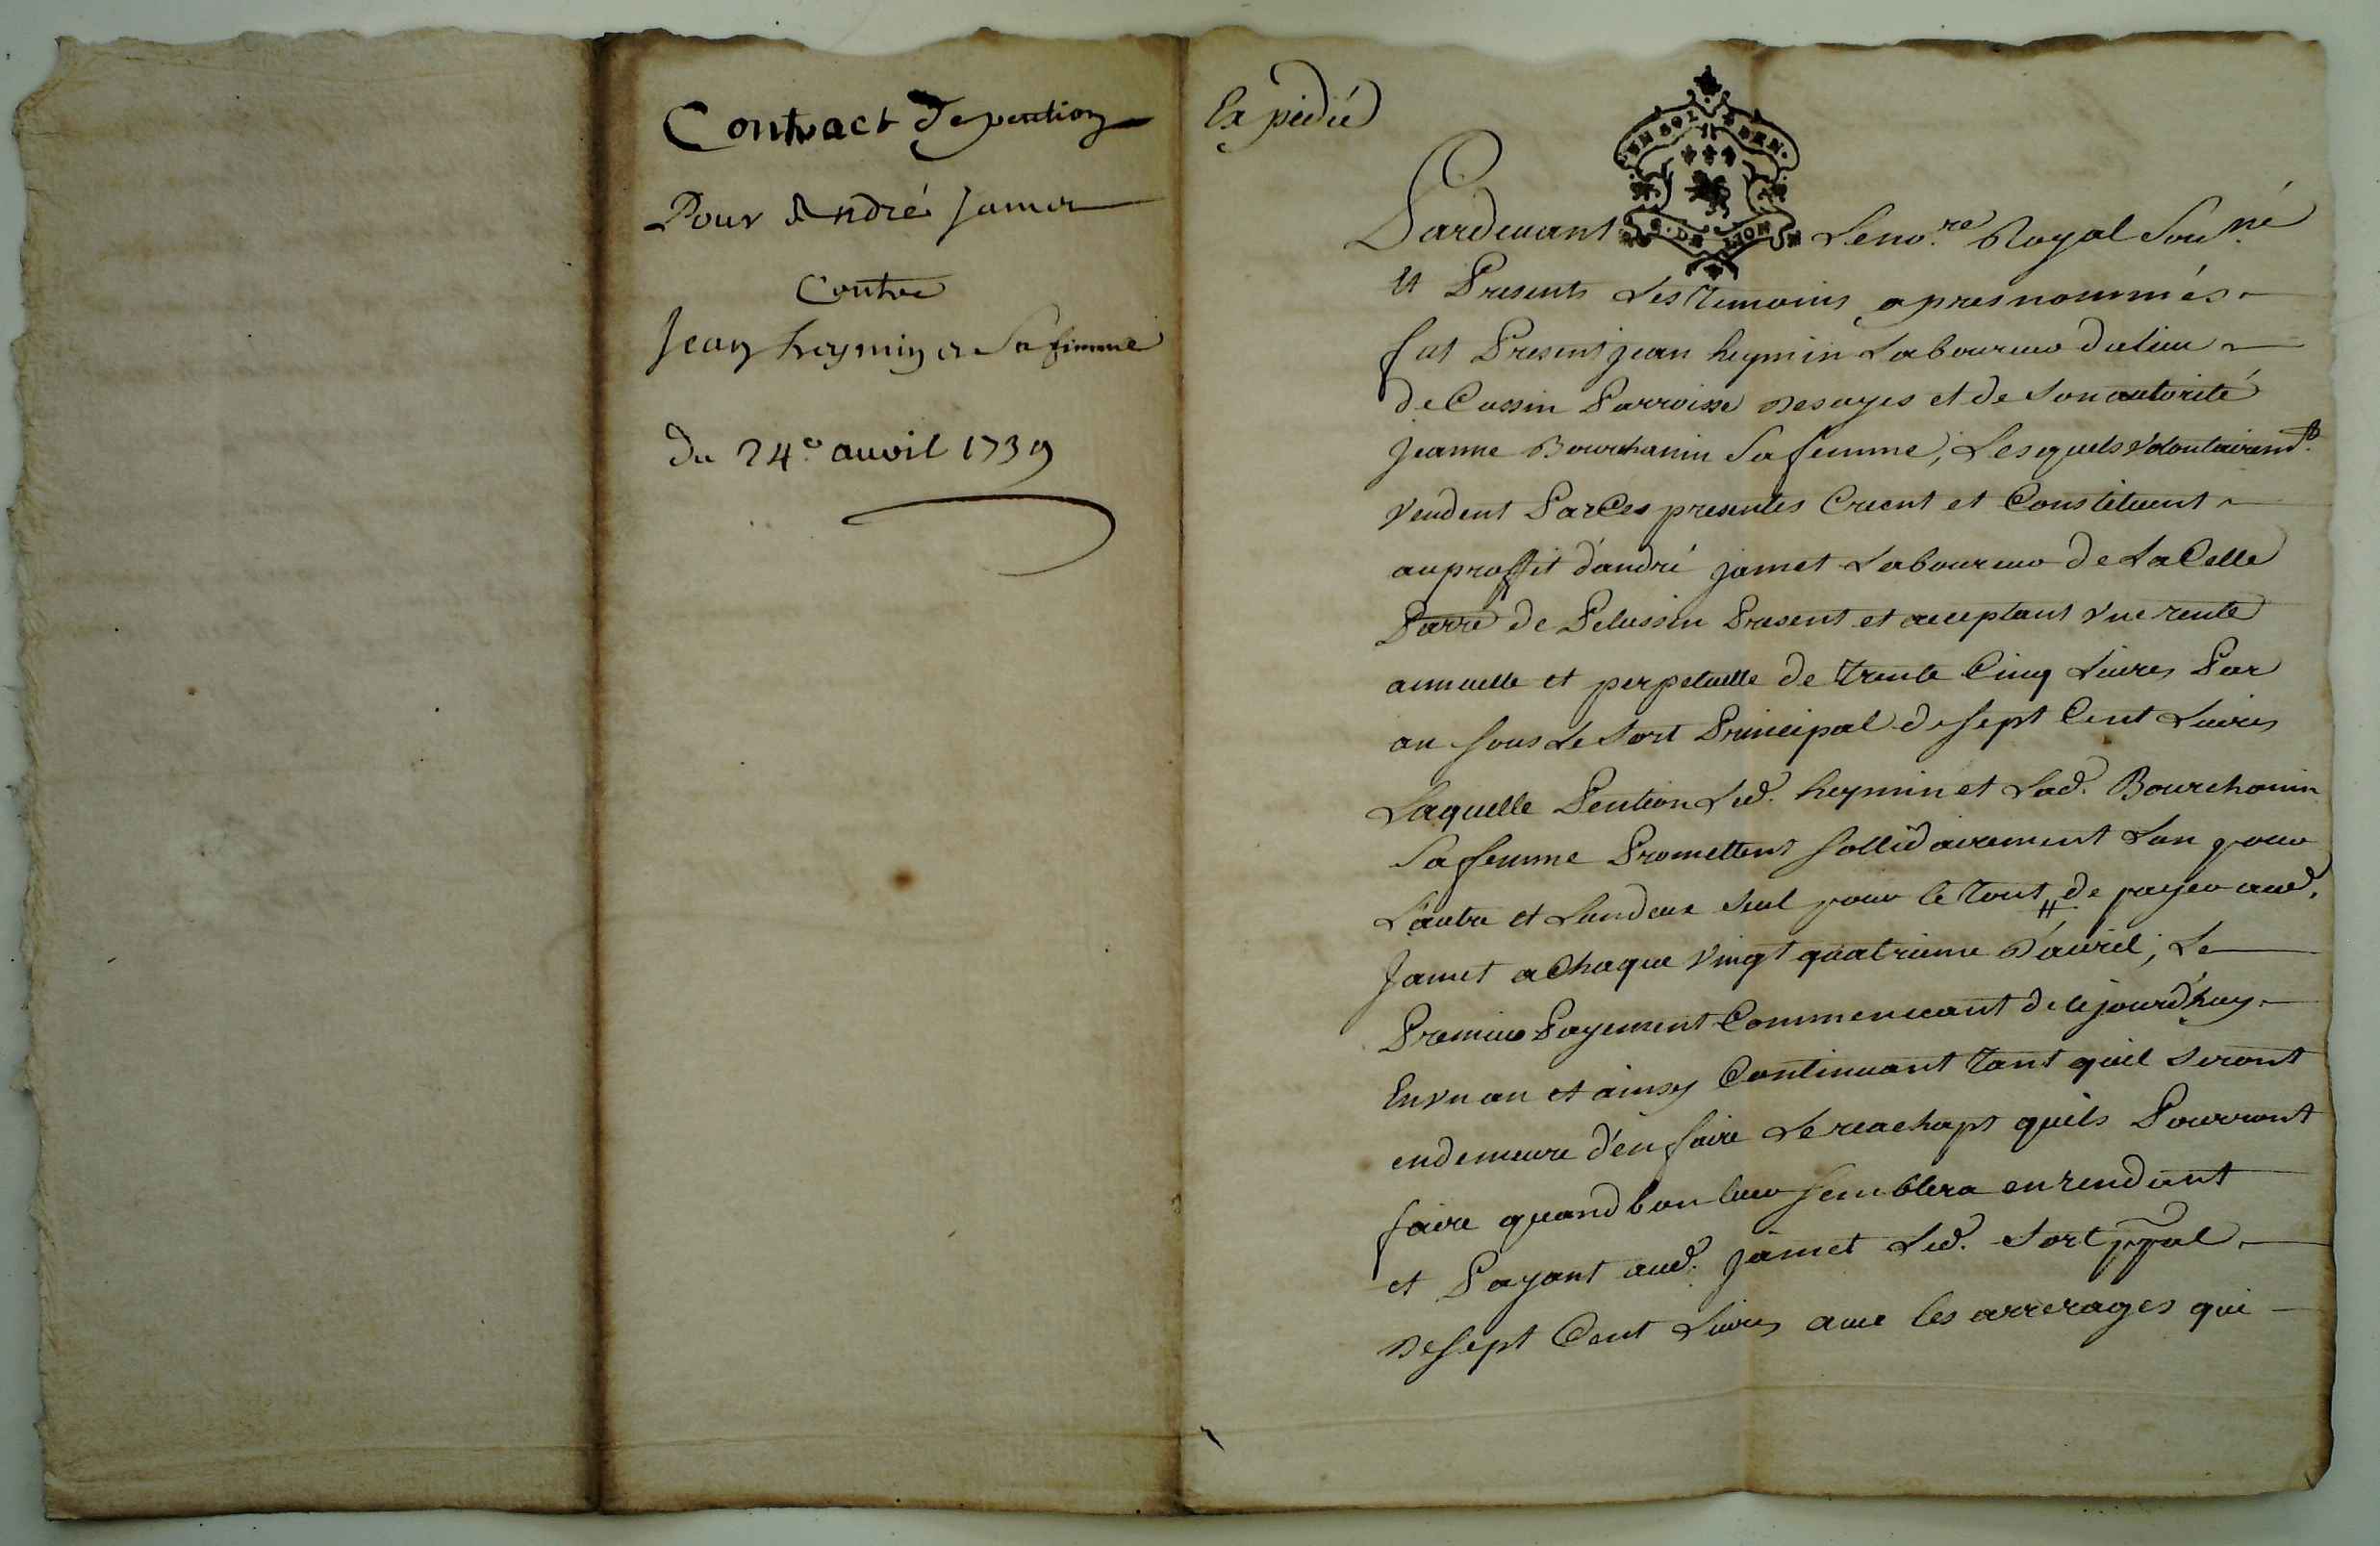 Contract de pention
Pour André Jamet
Contre
Jean heymin et Sa femme
du 24e. auvil 1739
Expedié
Pardeuant Le nore. Royal Souné.
et Presents Les temoins apres nommés
fut Present jean heymin Laboureur du lieu
de Cussin Parroisse desayes et de Son autorité
jeanne Bourchanin Sa femme, Lesquels Volontairemt.
Vendent Par Ces presentes Creent et Constituent
au proffit d'andré jamet Laboureur de La Celle
Parre de Pelussin Present et aceptant Vne rente
annuelle et perpetuelle de trente Cinq Liures Par
an sous Le Sort Principal de sept Cent Liures
Laquelle Pention Led. heymin et Lad. Bourchanin
Sa femme Promettent sollidairement Lun pour
L'autre et Lun deux Seul pour le tout de payer aud.
Jamet a Chaque Vingt quatrieme d'auril, Le
Premier Payement Commencant de cejourd'huy
En Vn an et ainsy Continuant tant quil Seront
en demeure d'en faire Le reachapt quils Pourront
faire quand bon leur semblera en rendant
et Payant aud. jamet Led. Sort ppal
de sept Cent Liures auec les arrerages qui